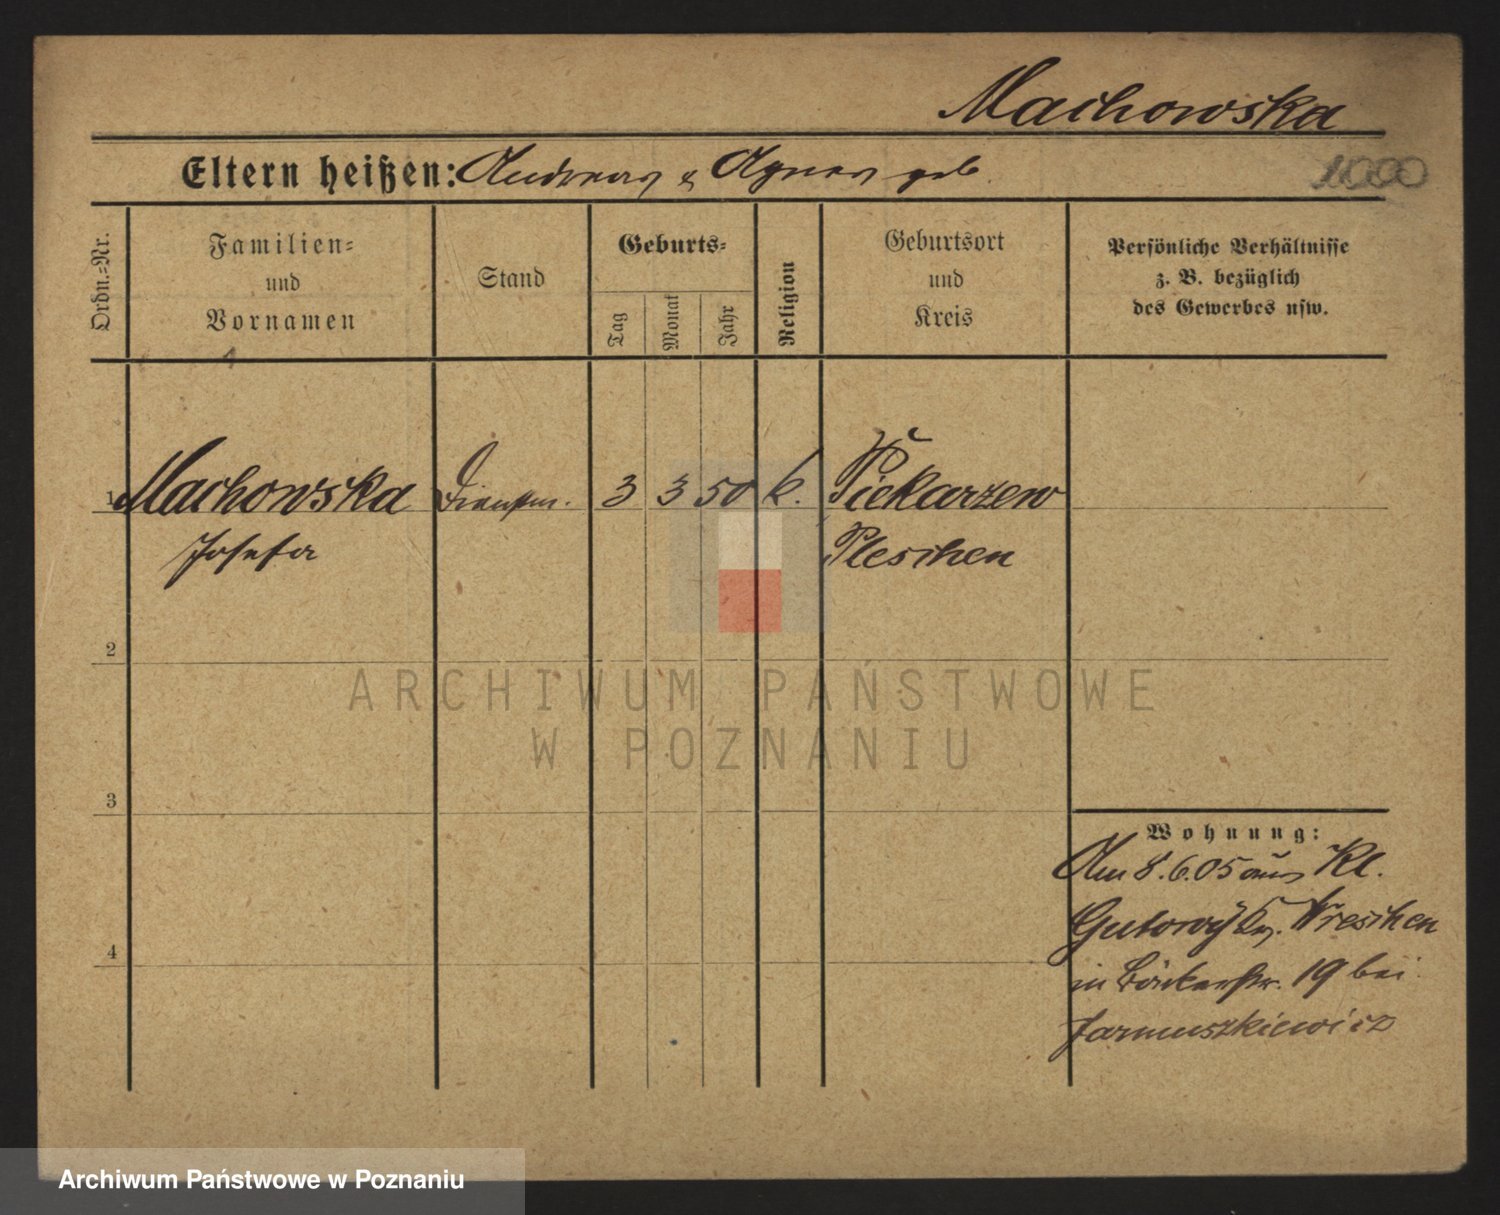 Machowska
Eltern heißen: Andreas & Agnes geb.
1000
Ordn.=Nr.
Familien=
und
Vornamen
Stand
Geburts=
Tag
Monat
Jahr
Religion
Geburtsort
und
Kreis
Persönliche Verhältnisse
z. B. bezüglich
des Gewerbes usw.
1 Machowska Dienstm. 3 3 50 k. Piekarzew
Josefa Pleschen
2
3
4
Wohnung:
Am 8.6.05 aus Kl.
Gutowy Kr. Wreschen
in Bäckerstr. 19 bei
Jarmuszkiewicz
ARCHIWUM PAŃSTWOWE
W POZNANIU
Archiwum Państwowe w Poznaniu